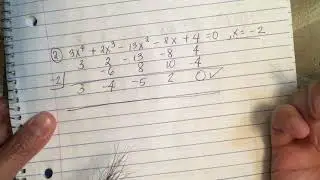 ② 3x⁴ + 2x³ - 13x² - 8x + 4 = 0 , x = -2
3 2 -13 -8 4
-2 -6 8 10 -4
3 -4 -5 2 0 ✓